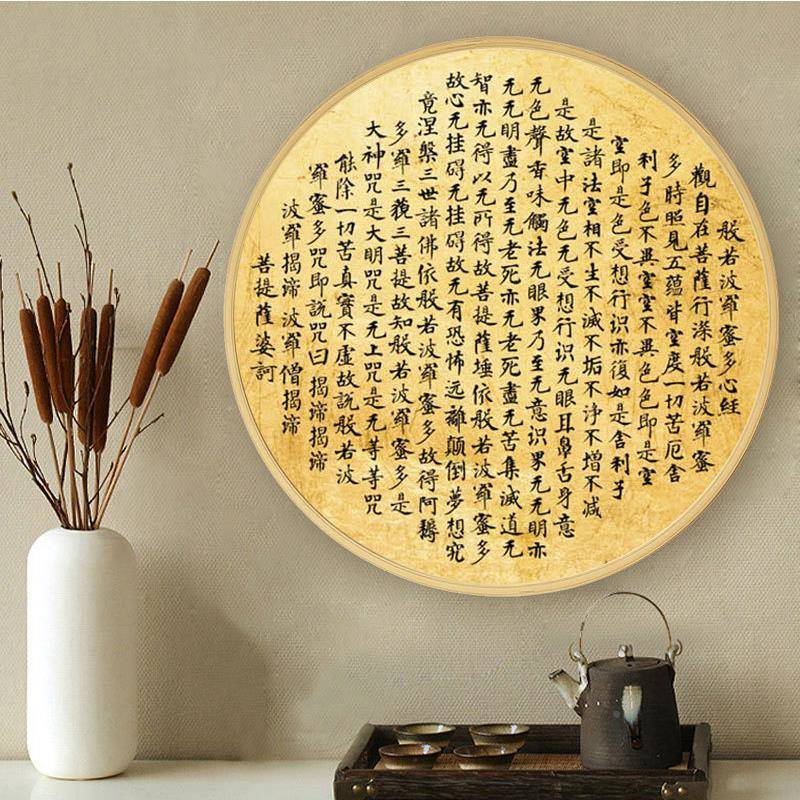 般若波羅蜜多心経
觀自在菩薩行深般若波羅蜜
多時照見五蕴皆空度一切苦厄舎
利子色不異空空不異色色即是空
空即是色受想行识亦復如是舎利子
是諸法空相不生不滅不垢不净不增不减
是故空中无色无受想行识无眼耳鼻舌身意
无色聲香味觸法无眼界乃至无意识界无无明亦
无无明盡乃至无老死亦无老死盡无苦集滅道无
智亦无得以无所得故菩提薩埵依般若波羅蜜多
故心无挂碍无挂碍故无有恐怖远離颠倒夢想究
竟涅槃三世諸佛依般若波羅蜜多故得阿耨
多羅三藐三菩提故知般若波羅蜜多是
大神咒是大明咒是无上咒是无等等咒
能除一切苦真實不虚故説般若波
羅蜜多咒即説咒曰 揭諦揭諦
波羅揭諦 波羅僧揭諦
菩提薩婆訶